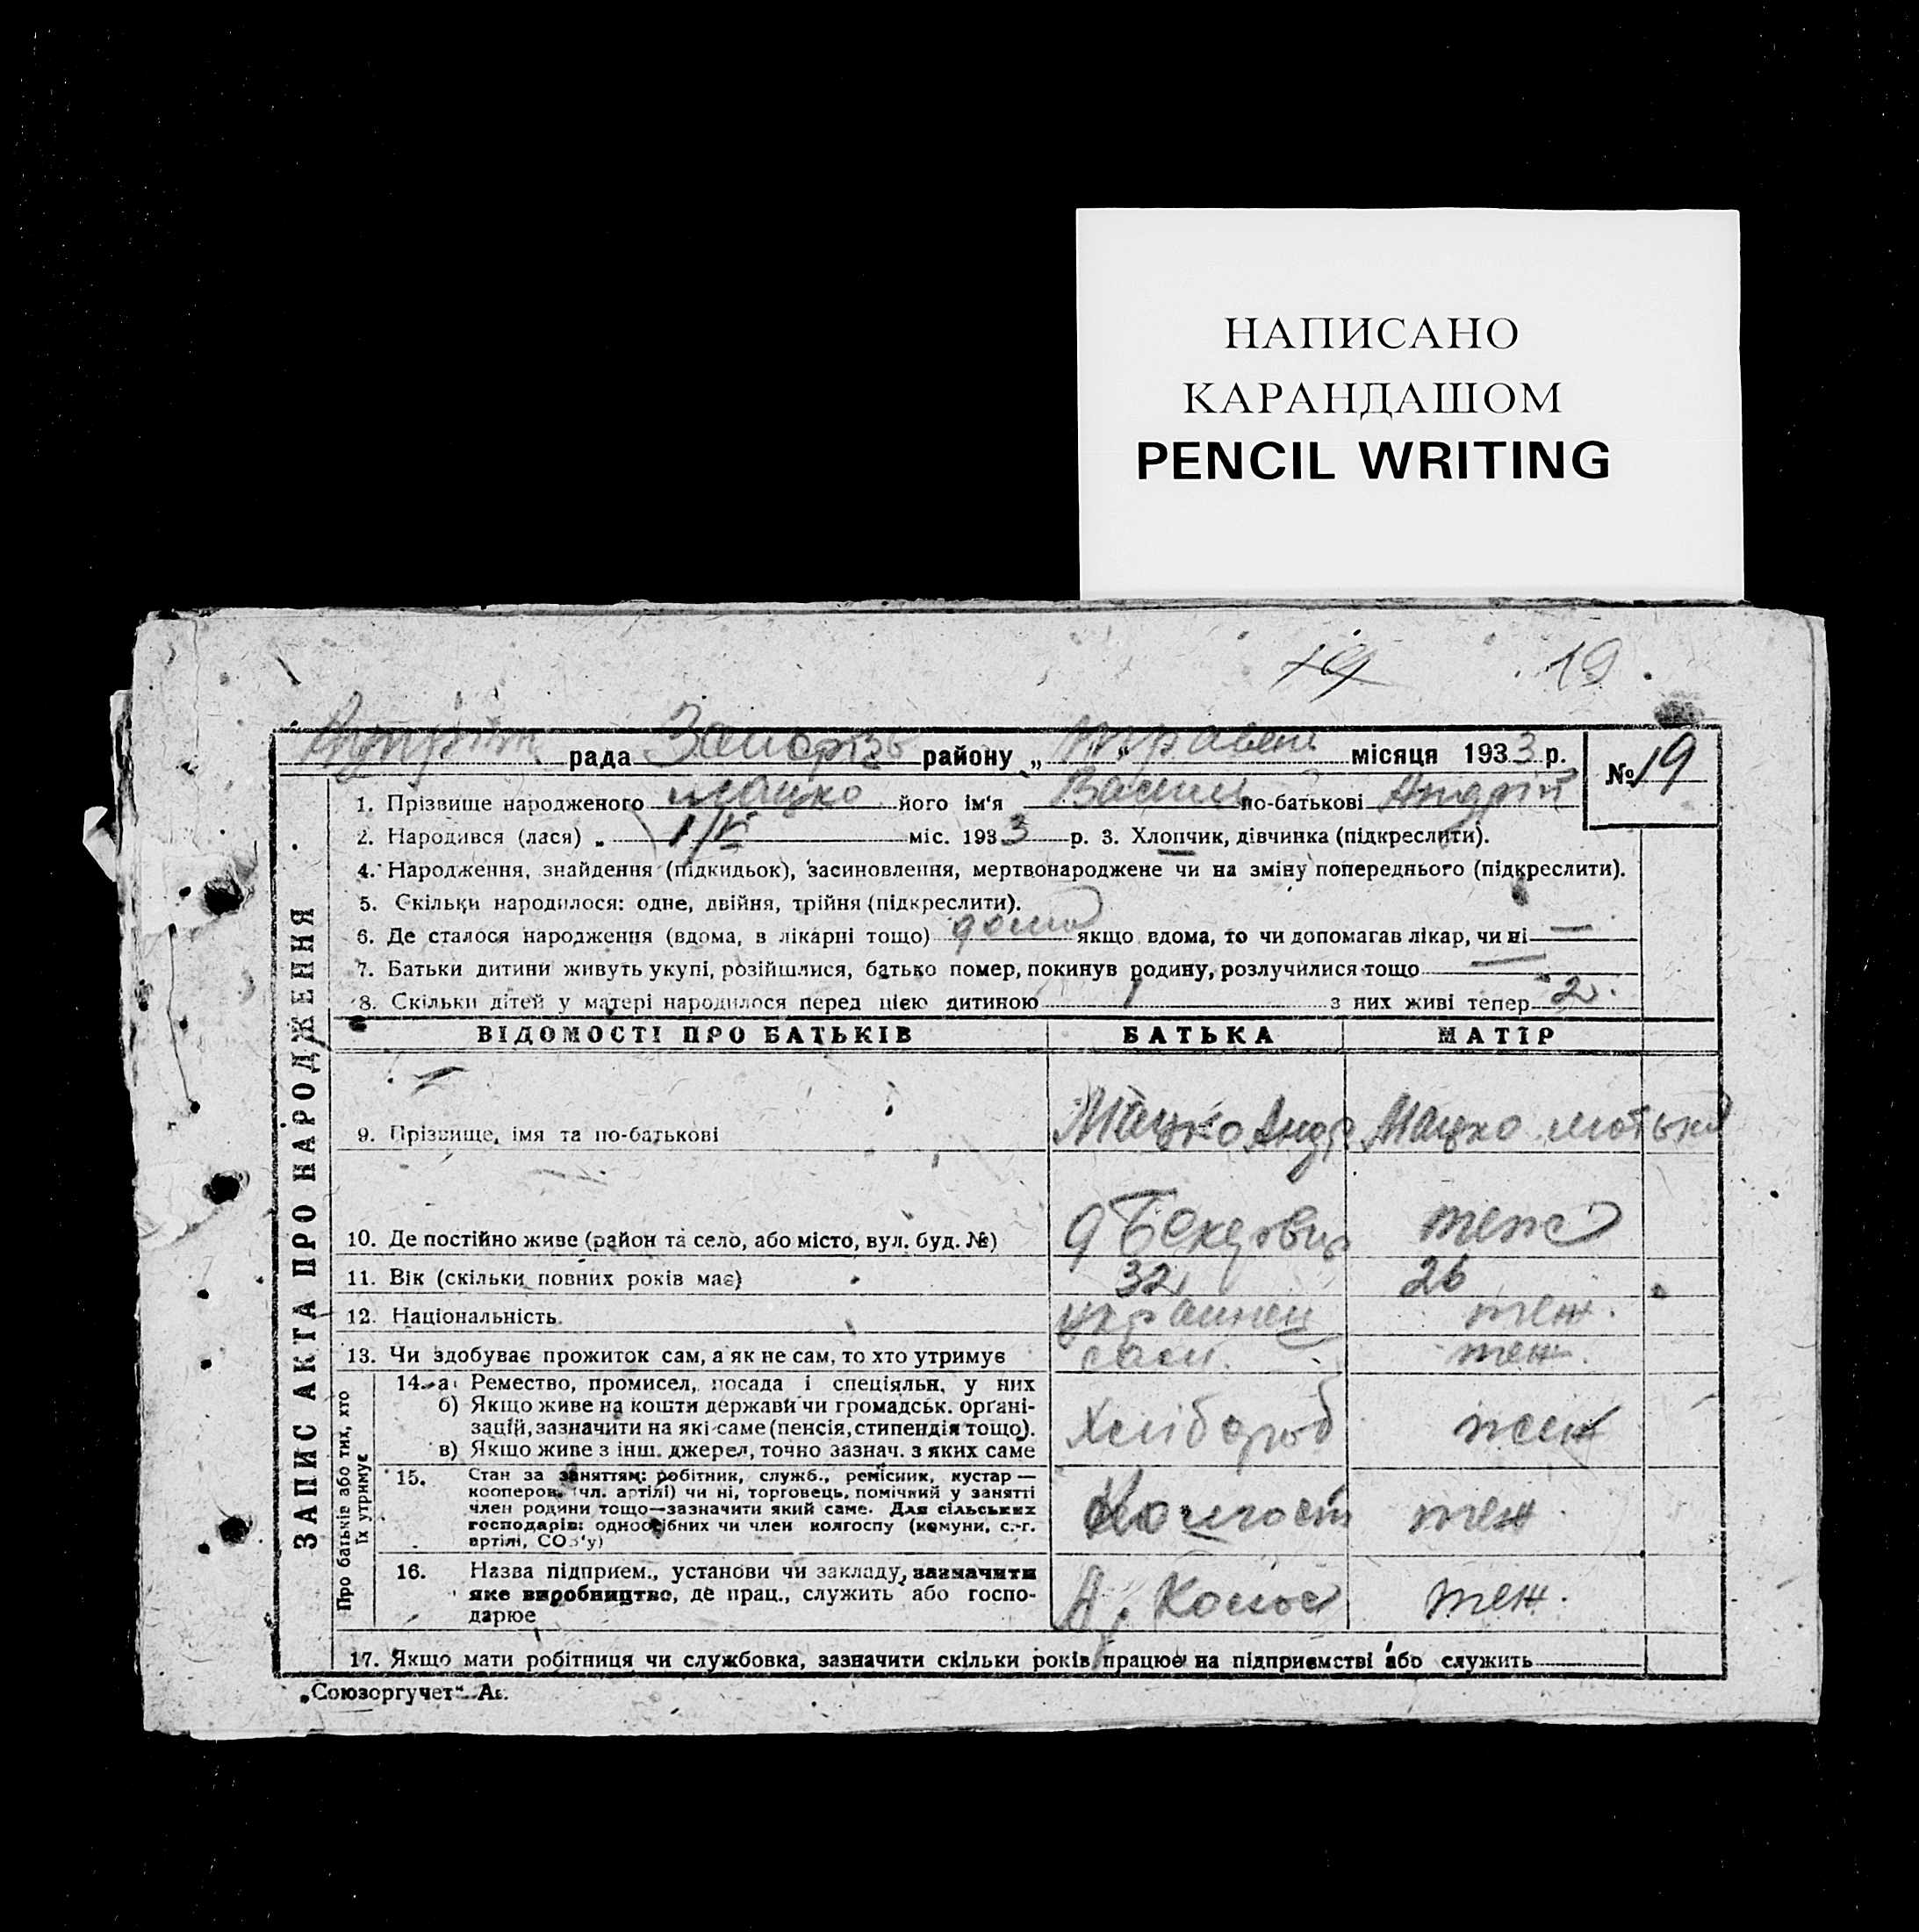 НАПИСАНО
КАРАНДАШОМ
PENCIL WRITING
19 19
рада Запорізь району „ “ травень місяця 1933 р. № 19
1. Прізвище народженого Мацко його ім‘я Василь по-батькові Андрій
2. Народився (лася) „ 1/V міс. 1933 р. 3. Хлопчик, дівчинка (підкреслити).
4. Народження, знайдення (підкидьок), засиновлення, мертвонароджене чи на зміну попереднього (підкреслити).
5. Скільки народилося: одне, двійня, трійня (підкреслити).
6. Де сталося народження (вдома, в лікарні тощо) дома якщо вдома, то чи допомагав лікар, чи ні —
7. Батьки дитини живуть укупі, розійшлися, батько помер, покинув родину, розлучилися тощо —
8. Скільки дітей у матері народилося перед цією дитиною 1 з них живі тепер 2
ЗАПИС АКТА ПРО НАРОДЖЕННЯ
ВІДОМОСТІ ПРО БАТЬКІВ БАТЬКА МАТІР
9. Прізвище, імя та по-батькові Мацко Андр Мацко
10. Де постійно живе (район та село, або місто, вул. буд. №) теж
11. Вік (скільки повних років має) 32 26
12. Національність украинец теж.
13. Чи здобуває прожиток сам, а як не сам, то хто утримує сам. теж.
Про батьків або тих, хто
їх утримує
14. а) Ремество, промисел, посада і спеціяльн. у них
б) Якщо живе на кошти держави чи громадськ. органі-
зацій, зазначити на які саме (пенсія, стипендія тощо).
в) Якщо живе з інш. джерел, точно зазнач. з яких саме
Хлібороб теж
15. Стан за заняттям: робітник, служб., ремісник, кустар —
кооперов. (чл. артілі) чи ні, торговець, помічний у занятті
член родини тощо—зазначити який саме. Для сільських
господарів: одноосібних чи член колгоспу (комуни, с.-г.
артілі, СОЗ‘у)
Колгосп теж
16. Назва підприєм., установи чи закладу, зазначити
яке виробництво, де прац., служить або госпо-
дарює
теж.
17. Якщо мати робітниця чи службовка, зазначити скільки років працює на підприємстві або служить
„Союзоргучет“